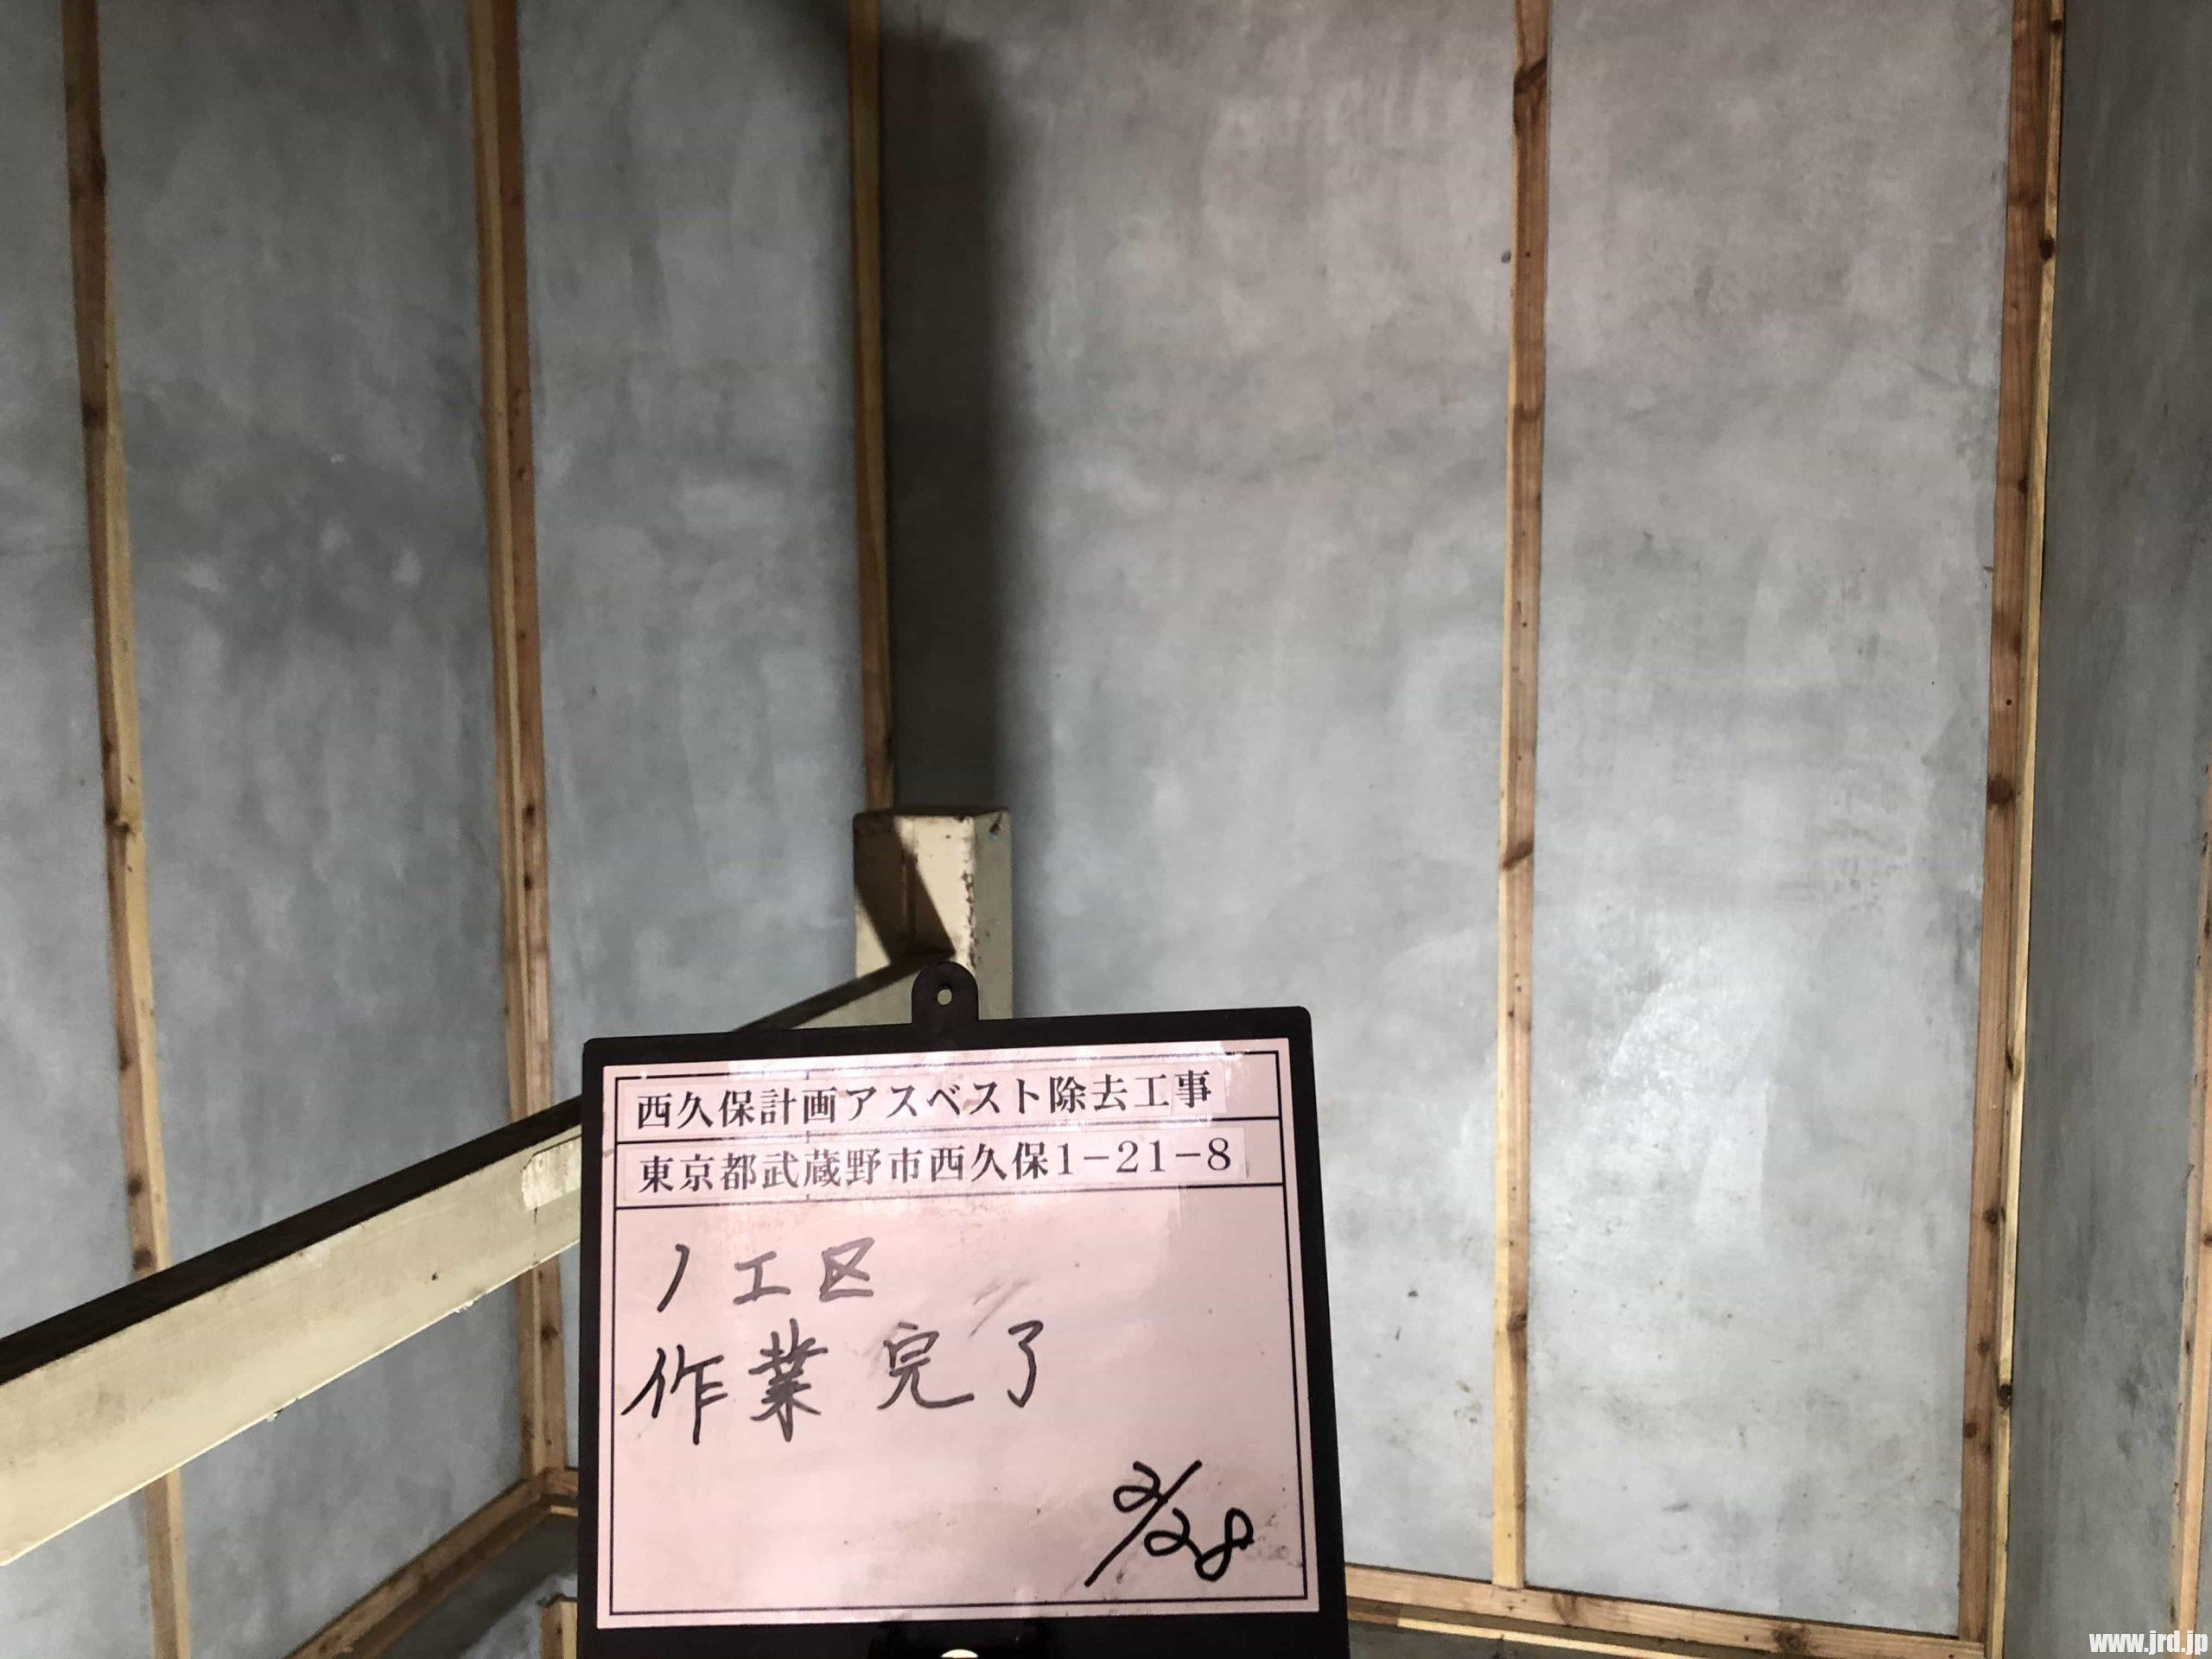 西久保計画アスベスト除去工事
東京都武蔵野市西久保1-21-8
1工区
作業完了
2/28
www.jrd.jp